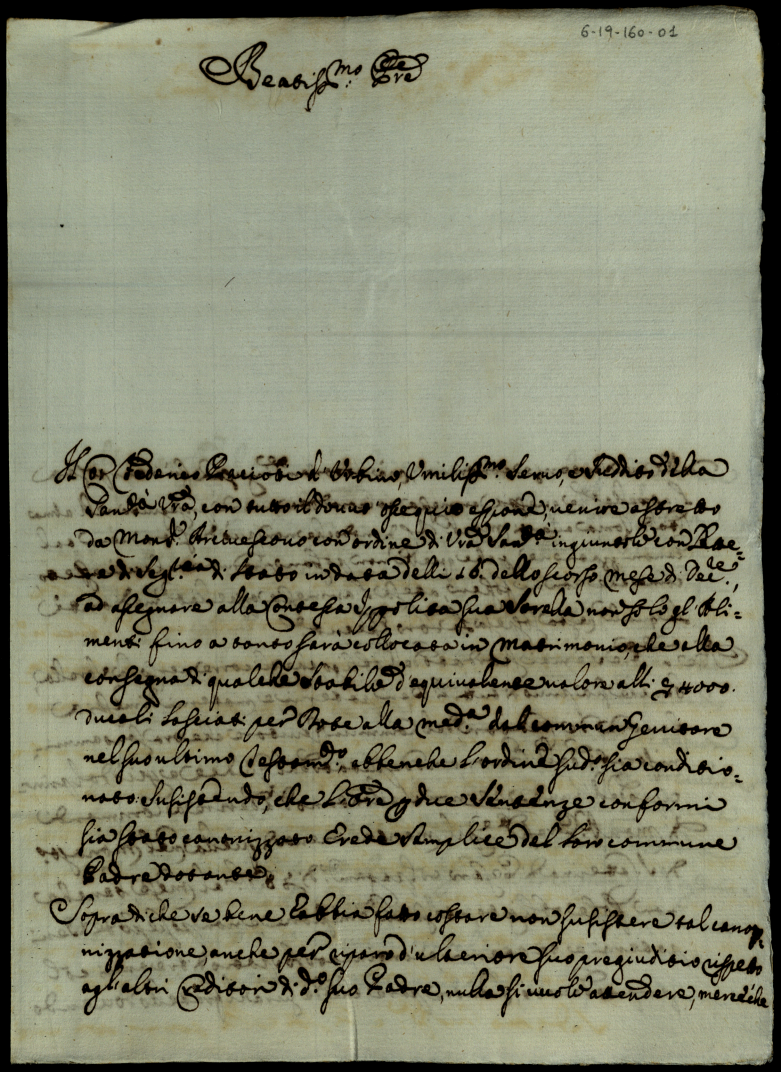 6-19-160-01
Beatiss.mo Pre
Il Co: Federico Paciotti d'Urbino, Umiliss.mo Servo, e Suddito della
Santà Vra, con tutto il douuto ossequio espone, uenire astretto
da Monsr. Arciuescouo con ordine di Vra Santà ingiuntoli con
di Segria di Stato in data delli 16. dello scorso mese di Xbre,
ad assegnare alla Contessa Ippolita sua Sorella non solo gl'Ali=
menti fino a tanto sarà collocata in Matrimonio, che alla
consegna di qualche stabile d'equiualente ualore alli 4000.
ducati lasciati per Dote alla meda. dal commun Genitore
nel suo ultimo Testamto, ebbenche l'ordine sudo sia conditio=
nato sussistendo, che l'Ore p due Sentenze conformi
sia stato canonizzato Erede Semplice del loro commune
Padre dotante.
Sopra di che se bene habbia fatto costare non sussistere tal cano=
nizzatione, anche per riparo d'ulteriore suo pregiuditio rispetto
agl'altri Creditori di do. suo Padre, nulla si uuole attendere, mercè che